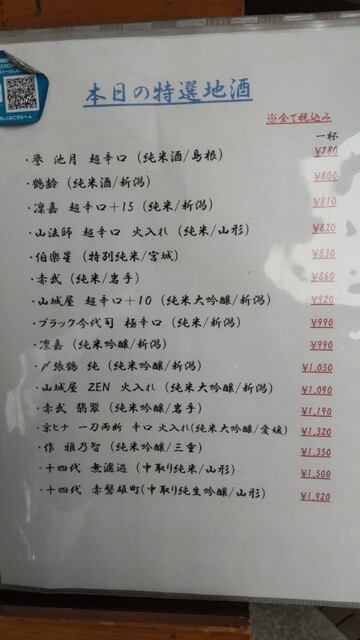 本日の特選地酒
※全て税込み
一杯
・誉 池月 超辛口（純米酒/島根） ¥780
・鶴齢（純米酒/新潟） ¥800
・凛嘉 超辛口+15（純米/新潟） ¥810
・山法師 超辛口 火入れ（純米/山形） ¥820
・伯楽星（特別純米/宮城） ¥830
・赤武（純米/岩手） ¥860
・山城屋 超辛口+10（純米大吟醸/新潟） ¥920
・ブラック今代司 極辛口（純米/新潟） ¥990
・凛嘉（純米吟醸/新潟） ¥990
・〆張鶴 純（純米吟醸/新潟） ¥1,050
・山城屋 ZEN 火入れ（純米大吟醸/新潟） ¥1,090
・赤武 翡翠（純米吟醸/岩手） ¥1,190
・京ヒナ 一刀両断 辛口 火入れ(純米大吟醸/愛媛) ¥1,320
・作 雅乃智（純米吟醸/三重） ¥1,350
・十四代 無濾過（中取り純米/山形） ¥1,500
・十四代 赤磐雄町(中取り純生吟醸/山形) ¥1,920